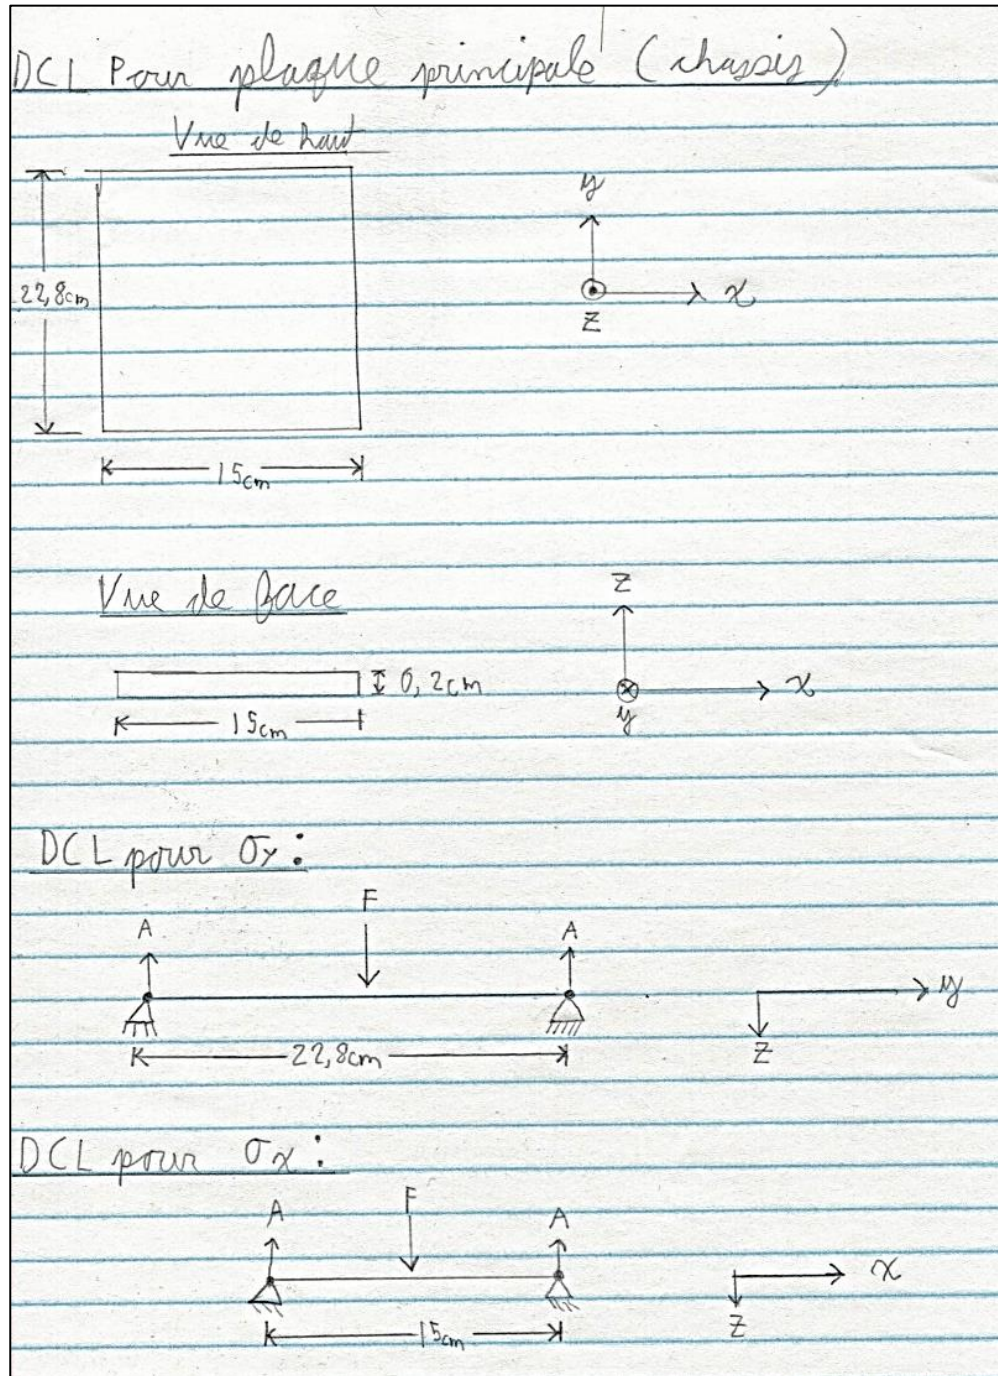 DCL Pour plaque principale (chassis)
Vue de haut
y
22,8cm
x
z
15cm
Vue de face
z
0,2cm
x
15cm
y
DCL pour σy:
F
A
A
y
22,8cm
z
DCL pour σx:
F
A
A
x
15cm
z